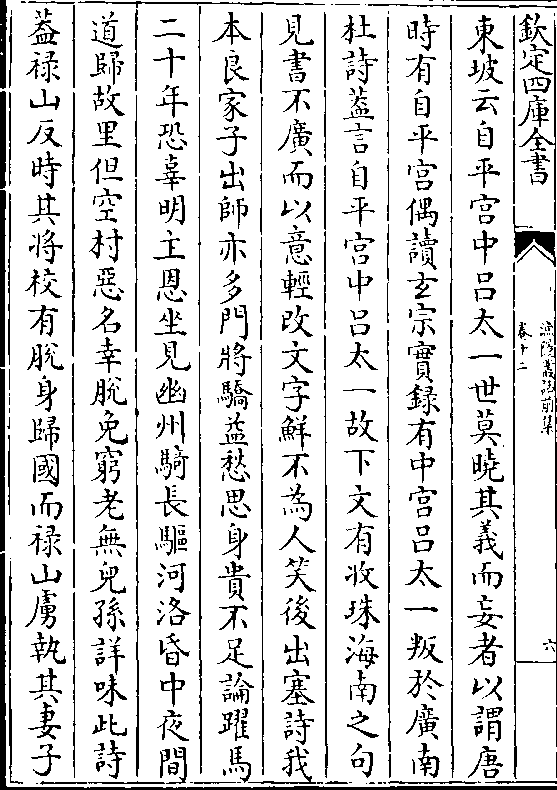 欽定四庫全書
漁隱叢話前集
卷十二
六
東坡云自平宫中吕太一世莫曉其義而妄者以謂唐
時有自平宫偶讀玄宗實録有中宫吕太一叛於廣南
杜詩葢言自平宫中吕太一故下文有收珠海南之句
見書不廣而以意輕改文字鮮不為人笑後出塞詩我
本良家子出師亦多門將驕益愁思身貴不足論躍馬
二十年恐辜明主恩坐見幽州騎長驅河洛昏中夜間
道歸故里但空村惡名幸脱免窮老無兒孫詳味此詩
葢禄山反時其將校有脱身歸國而禄山虜執其妻子